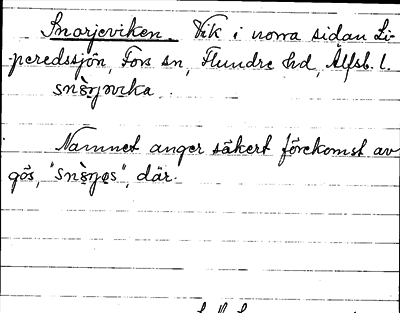 Snorjeviken. Vik i norra sidan Li-
peredssjön, Fors sn, Flundre hd, Älfsb. l.
Namnet anger säkert förekomst av
gös, där.